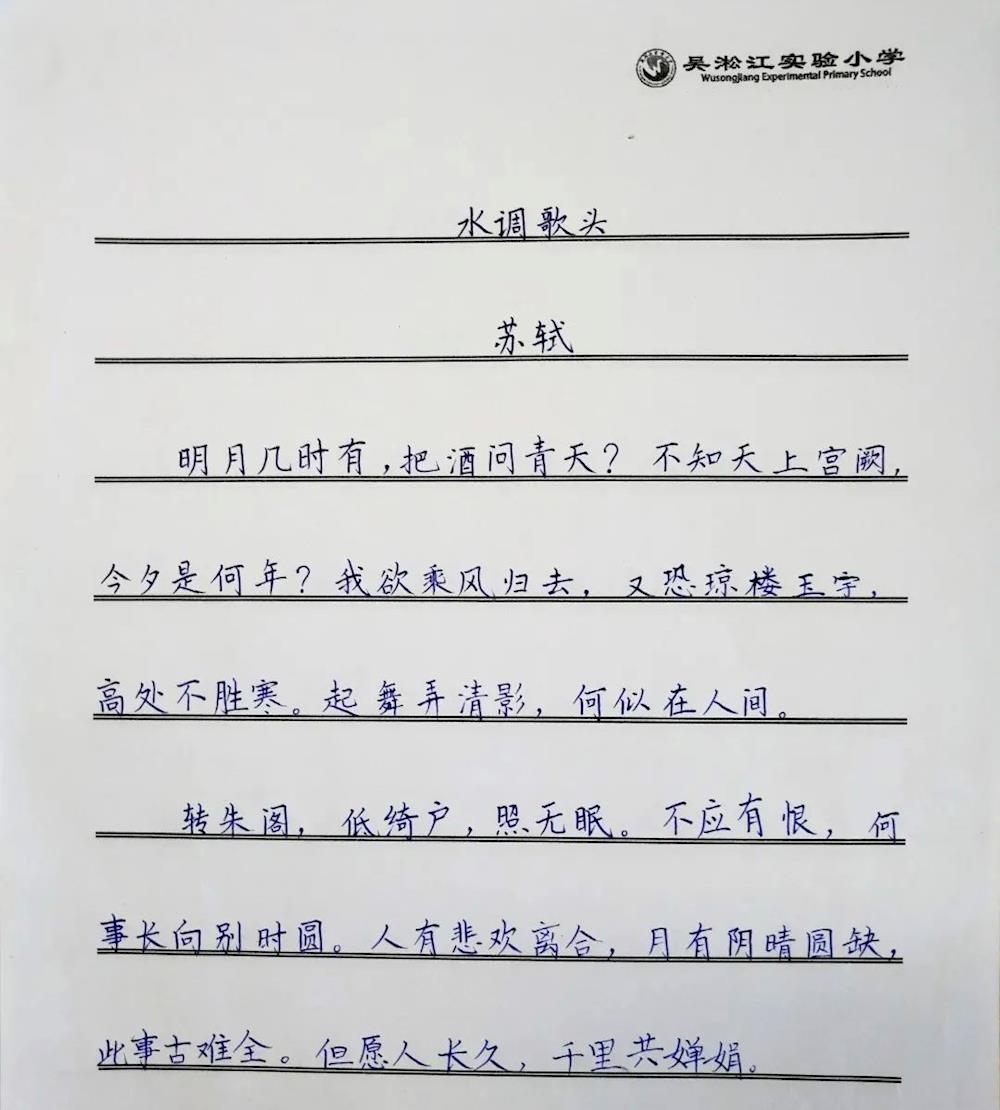 吴淞江实验小学
Wusongjiang Experimental Primary School
水调歌头
苏轼
明月几时有,把酒问青天?不知天上宫阙,
今夕是何年?我欲乘风归去,又恐琼楼玉宇,
高处不胜寒。起舞弄清影,何似在人间。
转朱阁,低绮户,照无眠。不应有恨,何
事长向别时圆。人有悲欢离合,月有阴晴圆缺,
此事古难全。但愿人长久,千里共婵娟。